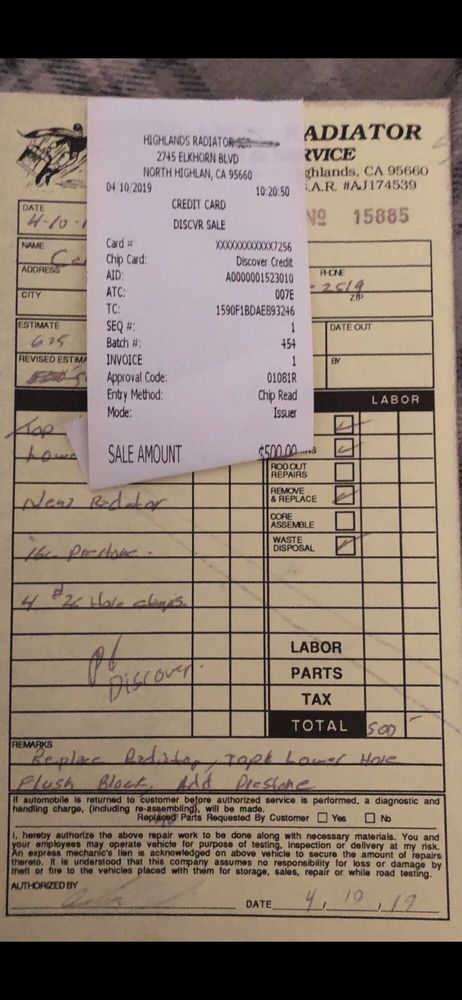 ADIATOR
RVICE
ghlands, CA 95660
.A.R. #AJ174539
Nº 15885
HIGHLANDS RADIATOR
2745 ELKHORN BLVD
NORTH HIGHLAN, CA 95660
04/10/2019 10:20:50
CREDIT CARD
DISCVR SALE
Card # XXXXXXXXXXXX7256
Chip Card: Discover Credit
AID: A0000001523010
ATC: 007E
TC: 1590F1BDAEB93246
SEQ #: 1
Batch #: 454
INVOICE 1
Approval Code: 01081R
Entry Method: Chip Read
Mode: Issuer
SALE AMOUNT $500.00
DATE
4-10-1
NAME
ADDRESS
PHONE
-2519
CITY
ZIP
ESTIMATE
675
DATE OUT
REVISED ESTIMA
BY
LABOR
Top
Lowe
ROD OUT
REPAIRS
New Radiator
REMOVE
& REPLACE
CORE
ASSEMBLE
WASTE
DISPOSAL
Prestone
4 #26 Hose clamps.
pd
Discover.
LABOR
PARTS
TAX
TOTAL 500
REMARKS
Replace Radiator, Top & Lower Hose
Flush Block, Add Prestone
If automobile is returned to customer before authorized service is performed, a diagnostic and
handling charge, (including re-assembling), will be made.
Replaced Parts Requested By Customer Yes No
I, hereby authorize the above repair work to be done along with necessary materials. You and
your employees may operate vehicle for purpose of testing, inspection or delivery at my risk.
An express mechanic's lien is acknowledged on above vehicle to secure the amount of repairs
thereto. It is understood that this company assumes no responsibility for loss or damage by
theft or fire to the vehicles placed with them for storage, sales, repair or while road testing.
AUTHORIZED BY
DATE 4, 10, 19